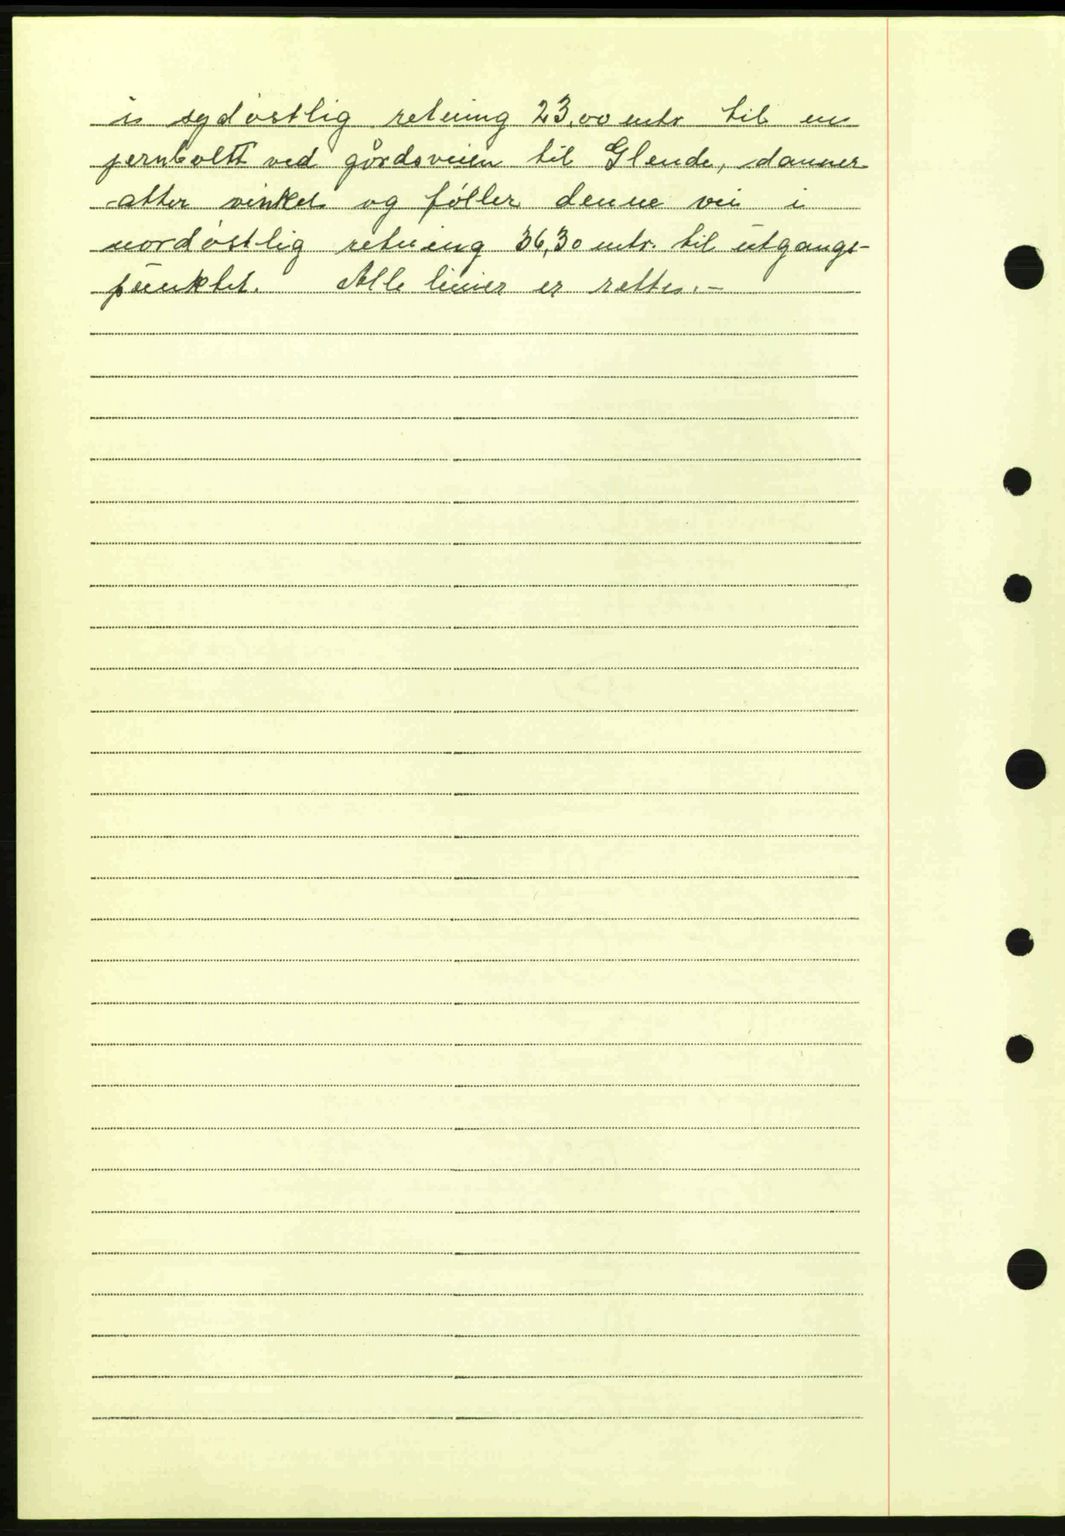 i sydøstlig retning 23,00 mtr. til en
jernbolt ved gårdsveien til Glende, danner
atter vinkel og føller denne vei i
nordøstlig retning 36,30 mtr. til utgangs-
punktet. Alle linier er rette.-